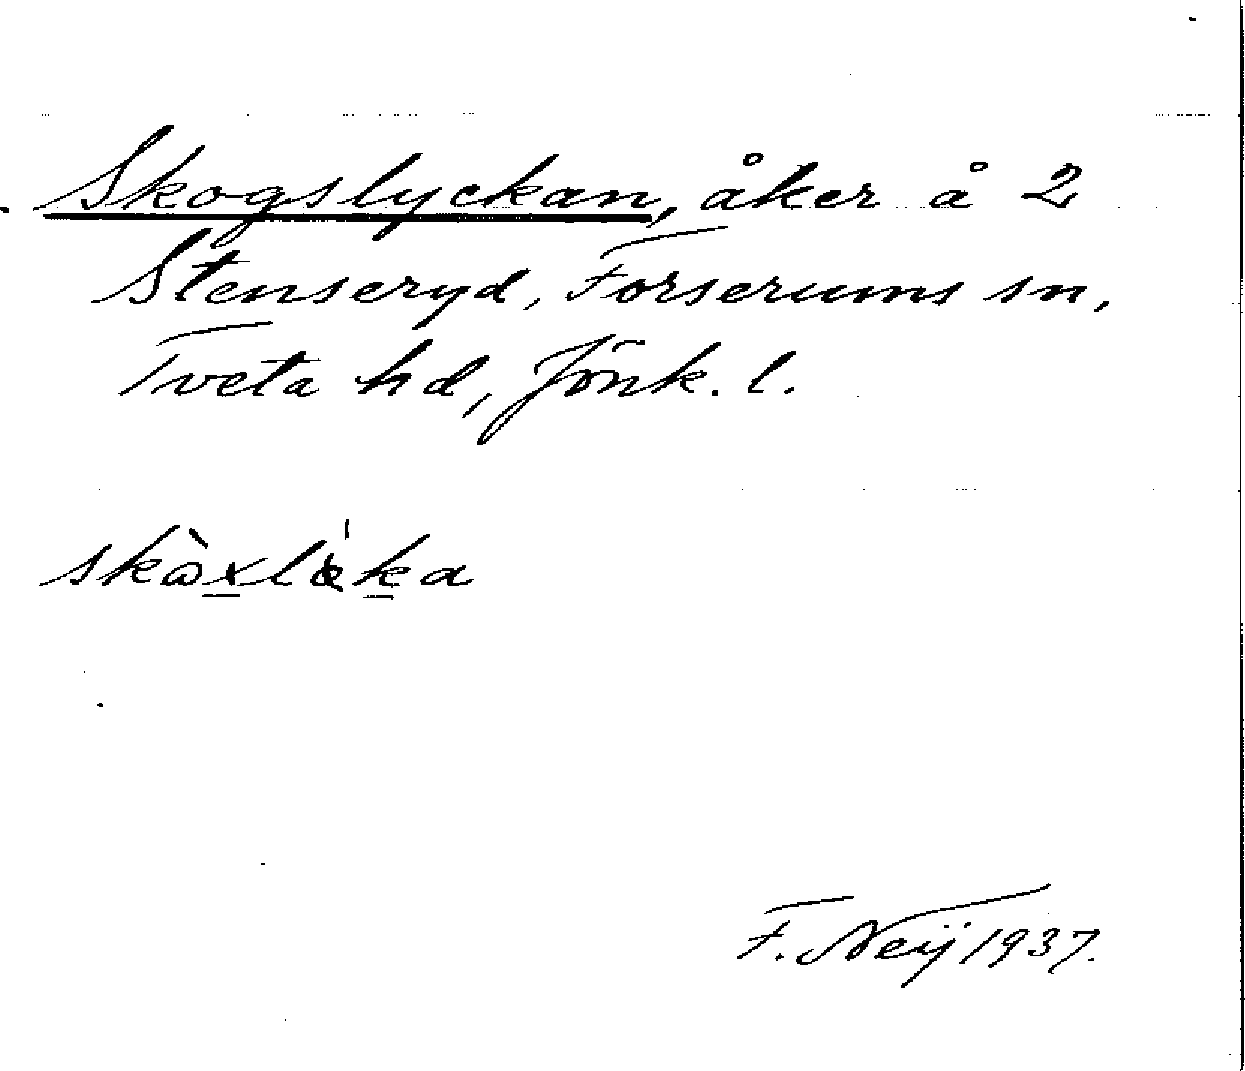 Skogslyckan, åker å 2
Stenseryd, Forserums sn,
Tveta hd, Jönk. l.
F. Neij 1937.